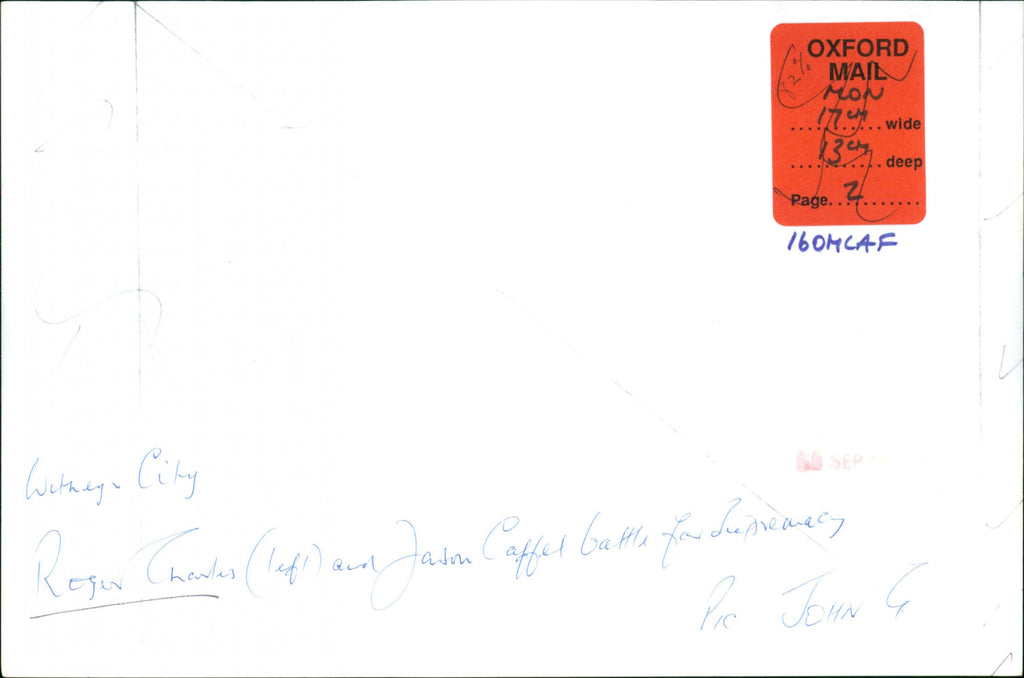 OXFORD
MAIL
82%
MON
17cm wide
13cm deep
Page 2
160MCAF
SEP
Witney v City
Roger Charles (left) and Jason Caffel battle for Supremacy
Pic JOHN G